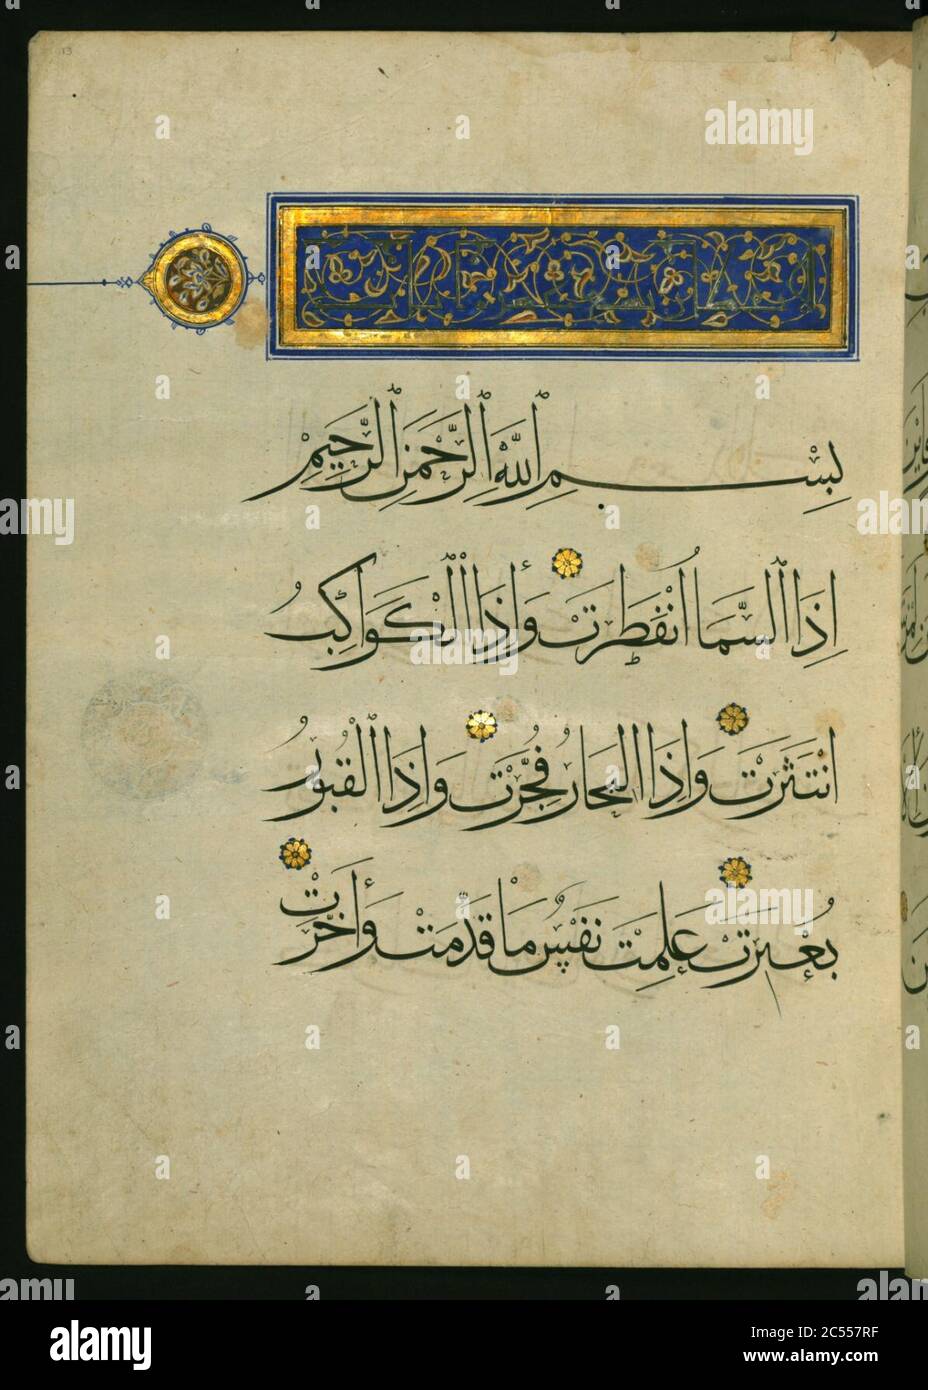 بِسْمِ ٱللَّهِ ٱلرَّحْمَنِ ٱلرَّحِيمِ
إِذَا ٱلسَّمَا ٱنْفَطَرَتْ وَإِذَا ٱلْكَوَاكِبُ
ٱنْتَثَرَتْ وَإِذَا ٱلْبِحَارُ فُجِّرَتْ وَإِذَا ٱلْقُبُورُ
بُعْثِرَتْ عَلِمَتْ نَفْسٌ مَا قَدَّمَتْ وَأَخَّرَتْ
alamy
Image ID: 2C557RF
www.alamy.com